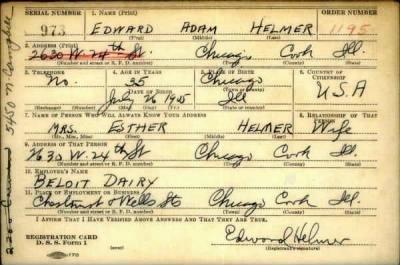 SERIAL NUMBER 1. NAME (Print) ORDER NUMBER
973 EDWARD ADAM HELMER 1195
(First) (Middle) (Last)
2. ADDRESS (Print)
2630 W. 24th St. Chicago Cook Ill.
(Number and street or R. F. D. number) (Town) (County) (State)
3. TELEPHONE 4. AGE IN YEARS 5. PLACE OF BIRTH 6. COUNTRY OF CITIZENSHIP
No. 35 Chicago
DATE OF BIRTH
July 26 1905 Ill U.S.A
(Mo.) (Day) (Yr.) (State or country)
7. NAME OF PERSON WHO WILL ALWAYS KNOW YOUR ADDRESS 8. RELATIONSHIP OF THAT PERSON
MRS. ESTHER HELMER Wife
(Mr., Mrs., Miss) (First) (Middle) (Last)
9. ADDRESS OF THAT PERSON
2630 W. 24th St Chicago Cook Ill.
(Number and street or R. F. D. number) (Town) (County) (State)
10. EMPLOYER'S NAME
BELOIT DAIRY
11. PLACE OF EMPLOYMENT OR BUSINESS
Chestnut & Wells Sts Chicago Cook Ill.
(Number and street or R. F. D. number) (Town) (County) (State)
I AFFIRM THAT I HAVE VERIFIED ABOVE ANSWERS AND THAT THEY ARE TRUE.
REGISTRATION CARD
D. S. S. Form 1 Edward Helmer
(Registrant's signature)
5450 N Campbell